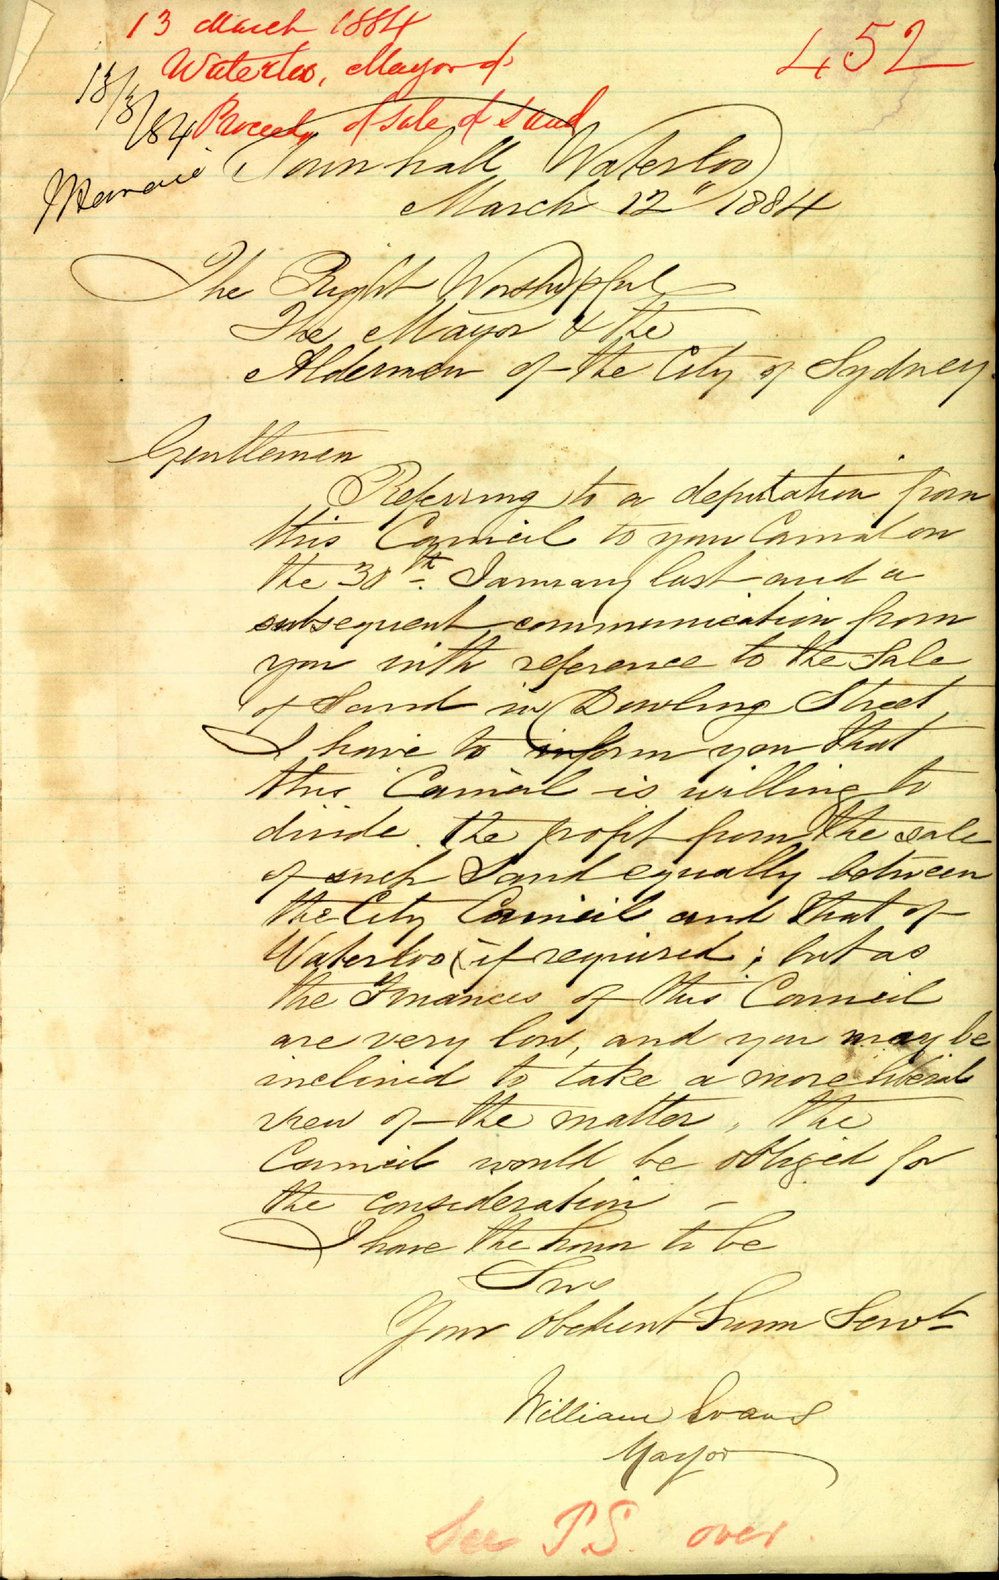 13 March 1884
452
Waterloo, Mayor of
13/3/84
Proceeds of Sale of Sand
Town hall Waterloo
March 12" 1884
The Right Worshipful
The Mayor & the
Aldermen of the City of Sydney.
Gentlemen
Referring to a deputation from
this Council to you on
the 30th. January last and a
subsequent communication from
you with reference to the Sale
of Sand in Dowling Street,
I have to inform you that
this Council is willing to
divide the profit from the sale
of such Sand equally between
the City Council and that of
Waterloo, if required; but as
the Finances of this Council
are very low, and you may be
inclined to take a more liberal
view of the matter, the
Council would be obliged for
the consideration -
I have the honor to be
Sirs
Your Obedient Servt
William Evans
Mayor
See P.S. over.